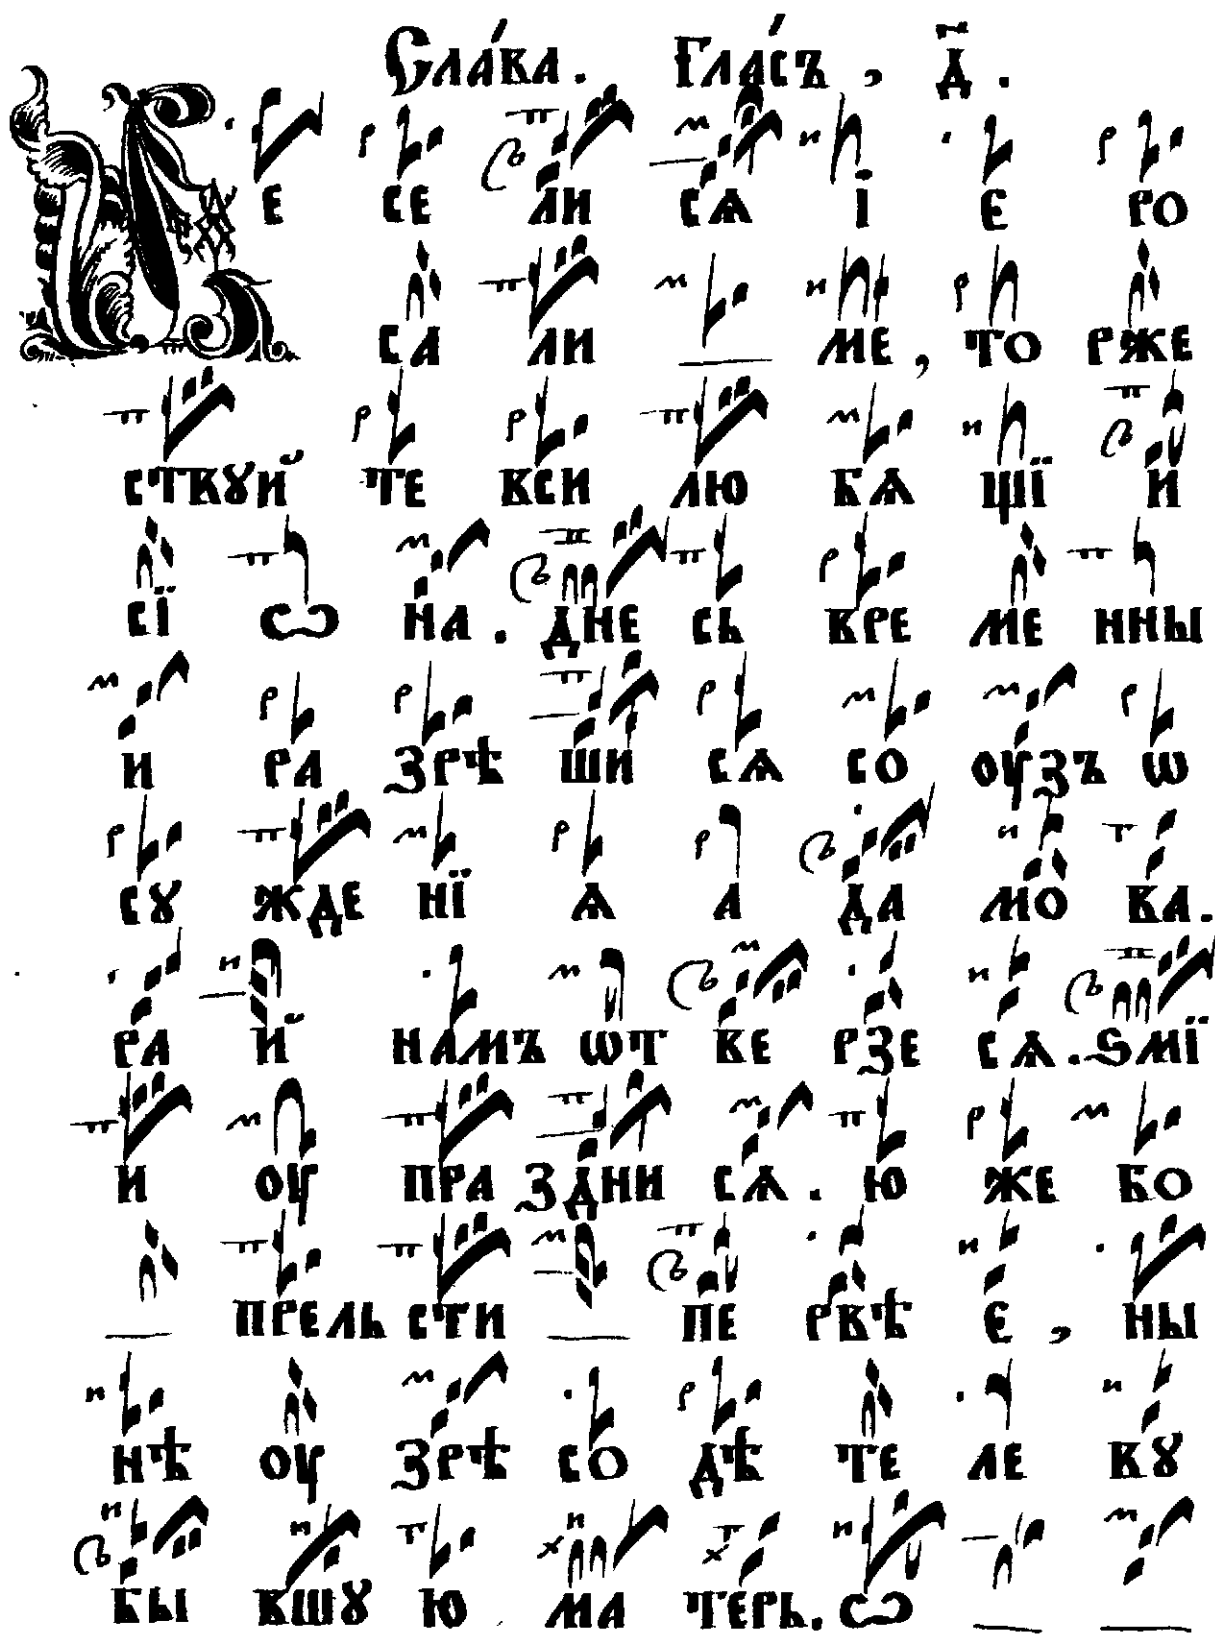 Сла́ва. Гла́съ, д҃.
Ве се ли сѧ і є ро
са ли ме, то рже
ствꙋй те вси лю бѧ щїи и
сї ѡ на. дне сь вре ме нны
и ра зрѣ ши сѧ со оузъ ѡ
сꙋ жде нї ѧ а да мо ва.
ра й намъ ѿт ве рзе сѧ. ѕмї
и оу пра здни сѧ. ю же бо
прель сти пе рвѣ є, ны
нѣ оу зрѣ со дѣ те ле вꙋ
бы вшꙋ ю ма терь. ѡ